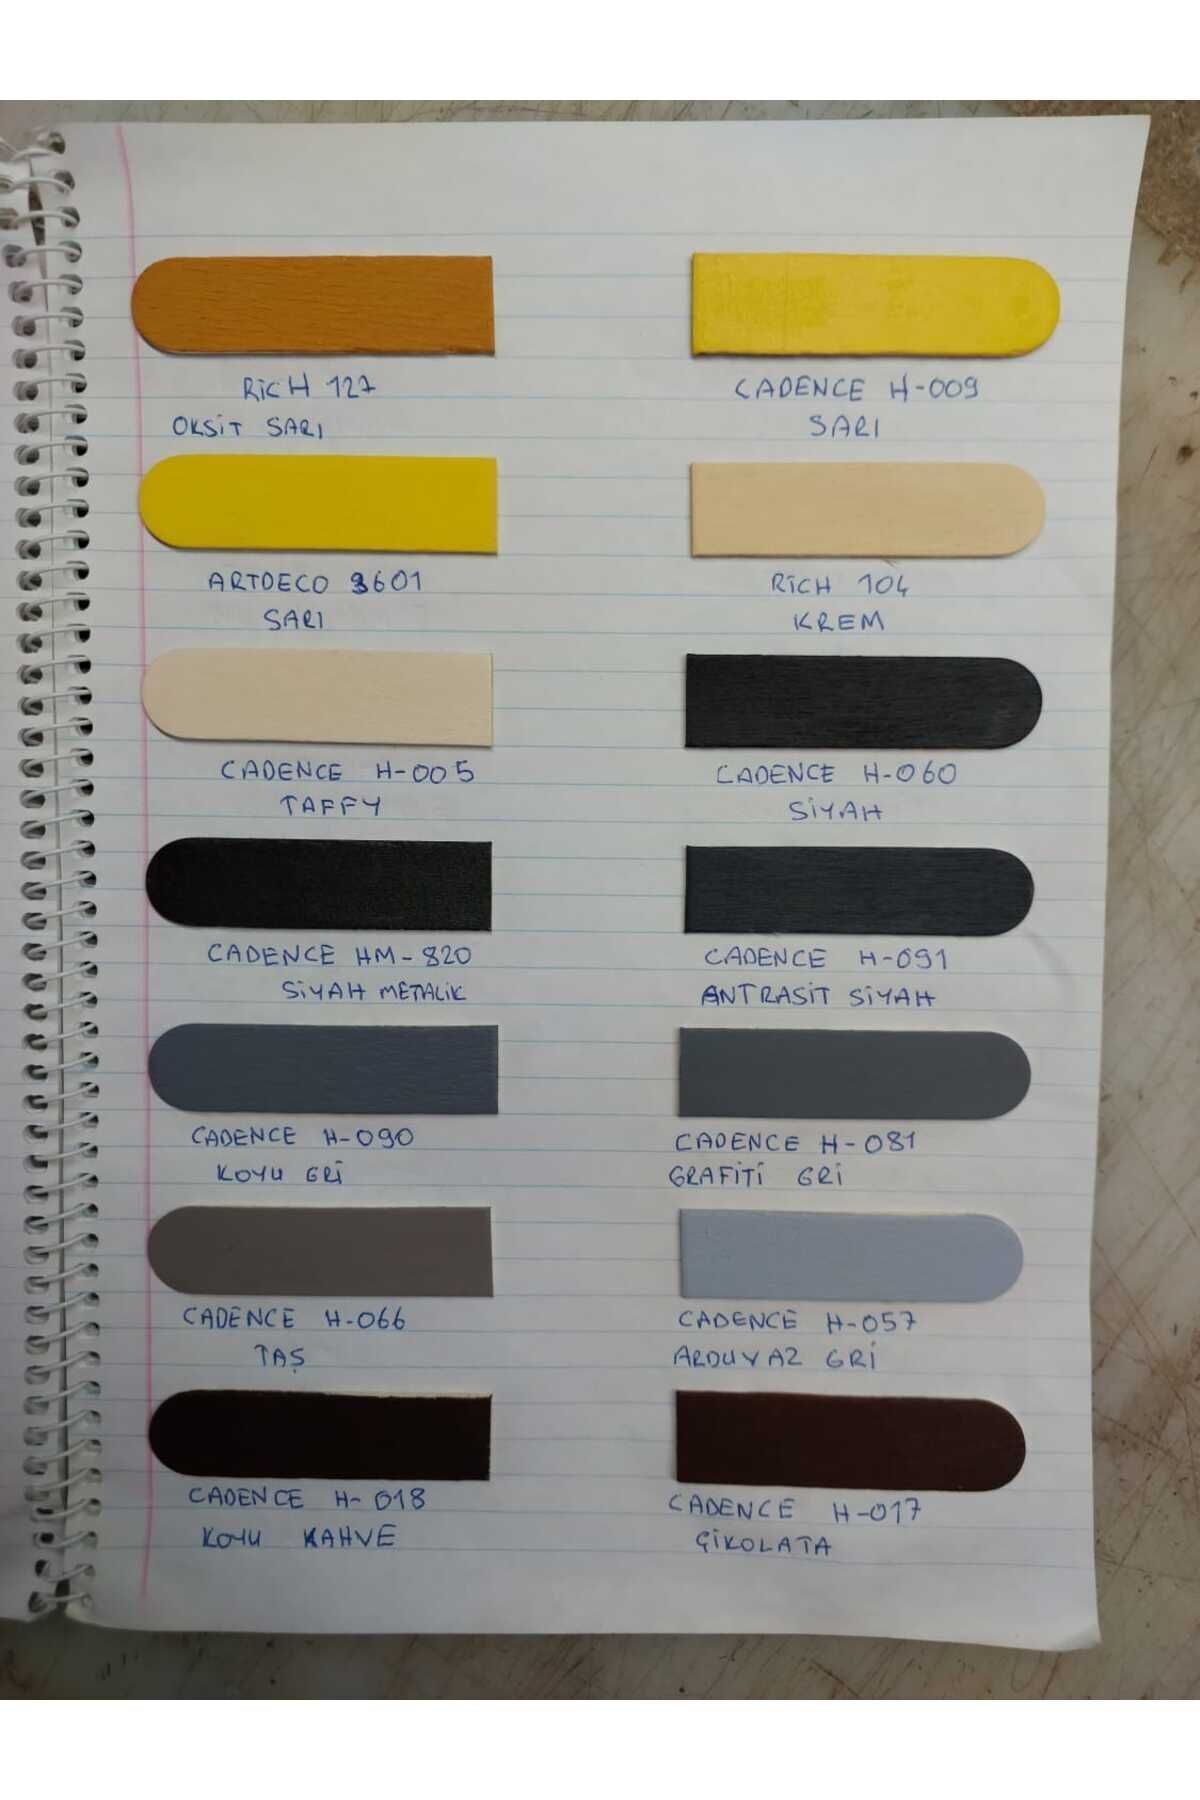 RiCH 127
OKSiT SARI
CADENCE H-009
SARI
ARTDECO 3601
SARI
RiCH 104
KREM
CADENCE H-005
TAFFY
CADENCE H-060
SiYAH
CADENCE HM-820
SiYAH METALiK
CADENCE H-091
ANTRASiT SiYAH
CADENCE H-090
KOYU GRi
CADENCE H-081
GRAFiTi GRi
CADENCE H-066
TAŞ
CADENCE H-057
ARDUVAZ GRi
CADENCE H-018
KOYU KAHVE
CADENCE H-017
ÇiKOLATA